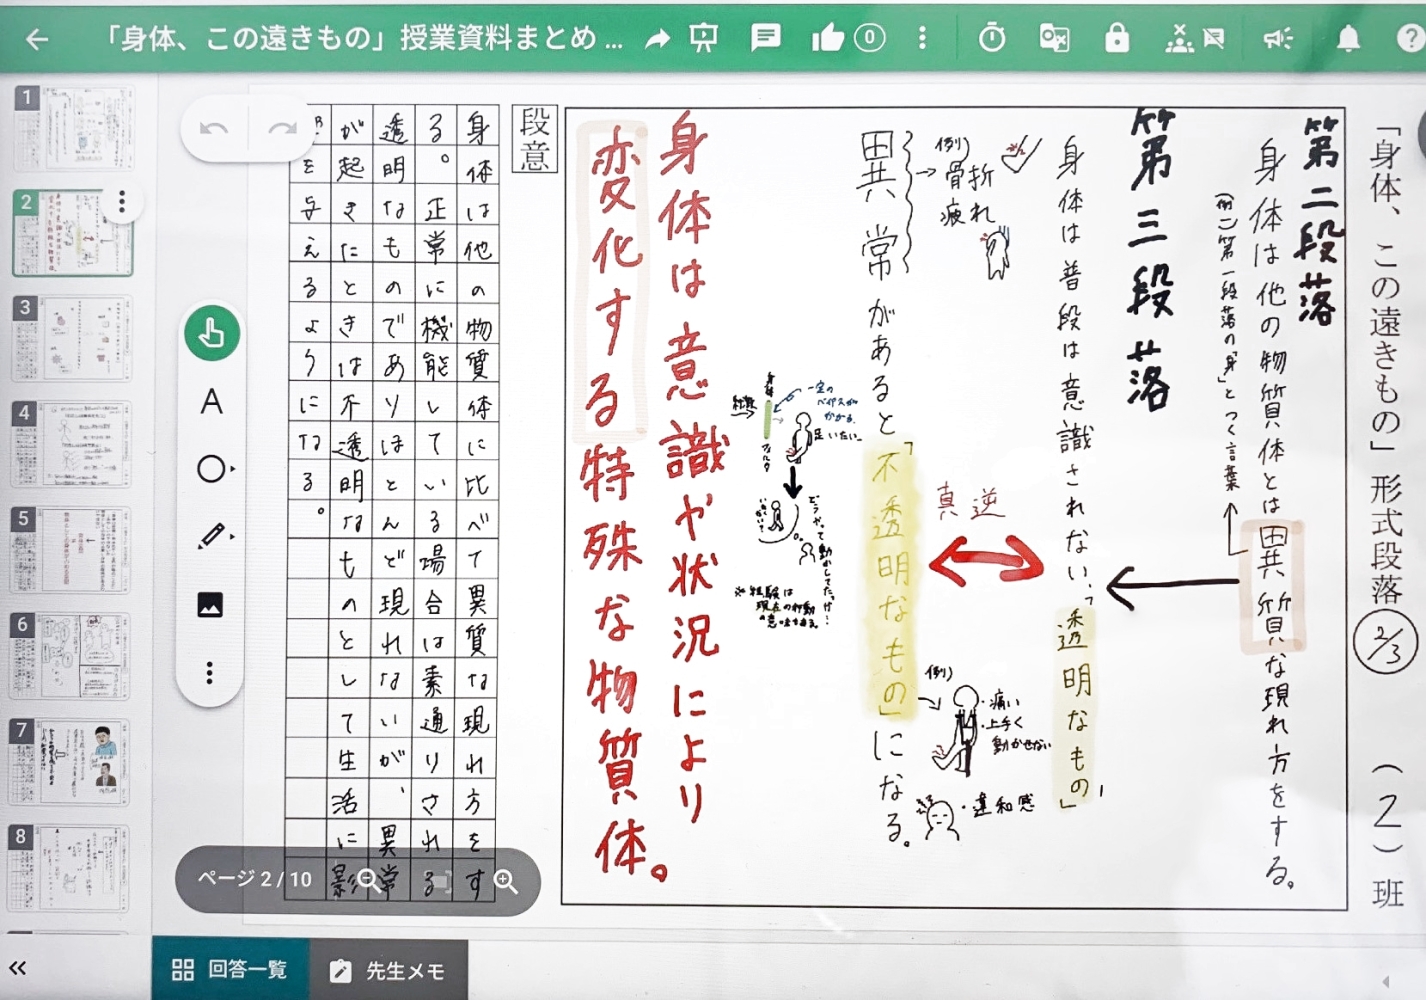 「身体、この遠きもの」授業資料まとめ ...
0
1
2
3
4
5
6
7
8
「身体、この遠きもの」形式段落 2/3 （2）班
第二段落
身体は他の物質体とは異質な現れ方をする。
第三段落
身体は普段は意識されない、「透明なもの」
真逆
例)
骨折
疲れ
異常があると「不透明なもの」になる。
例)
・痛い
・上手く
動かせない
・違和感
一定の
足いたい…
身体は意識や状況により
変化する特殊な物質体。
段意
身体は他の物質体に比べて異質な現れ方をす
る。正常に機能している場合は素通りされる
透明なものでありほとんど現れないが、異常
が起きたときは不透明なものとして生活に影
を与えるようになる。
ページ 2 / 10
A
回答一覧
先生メモ